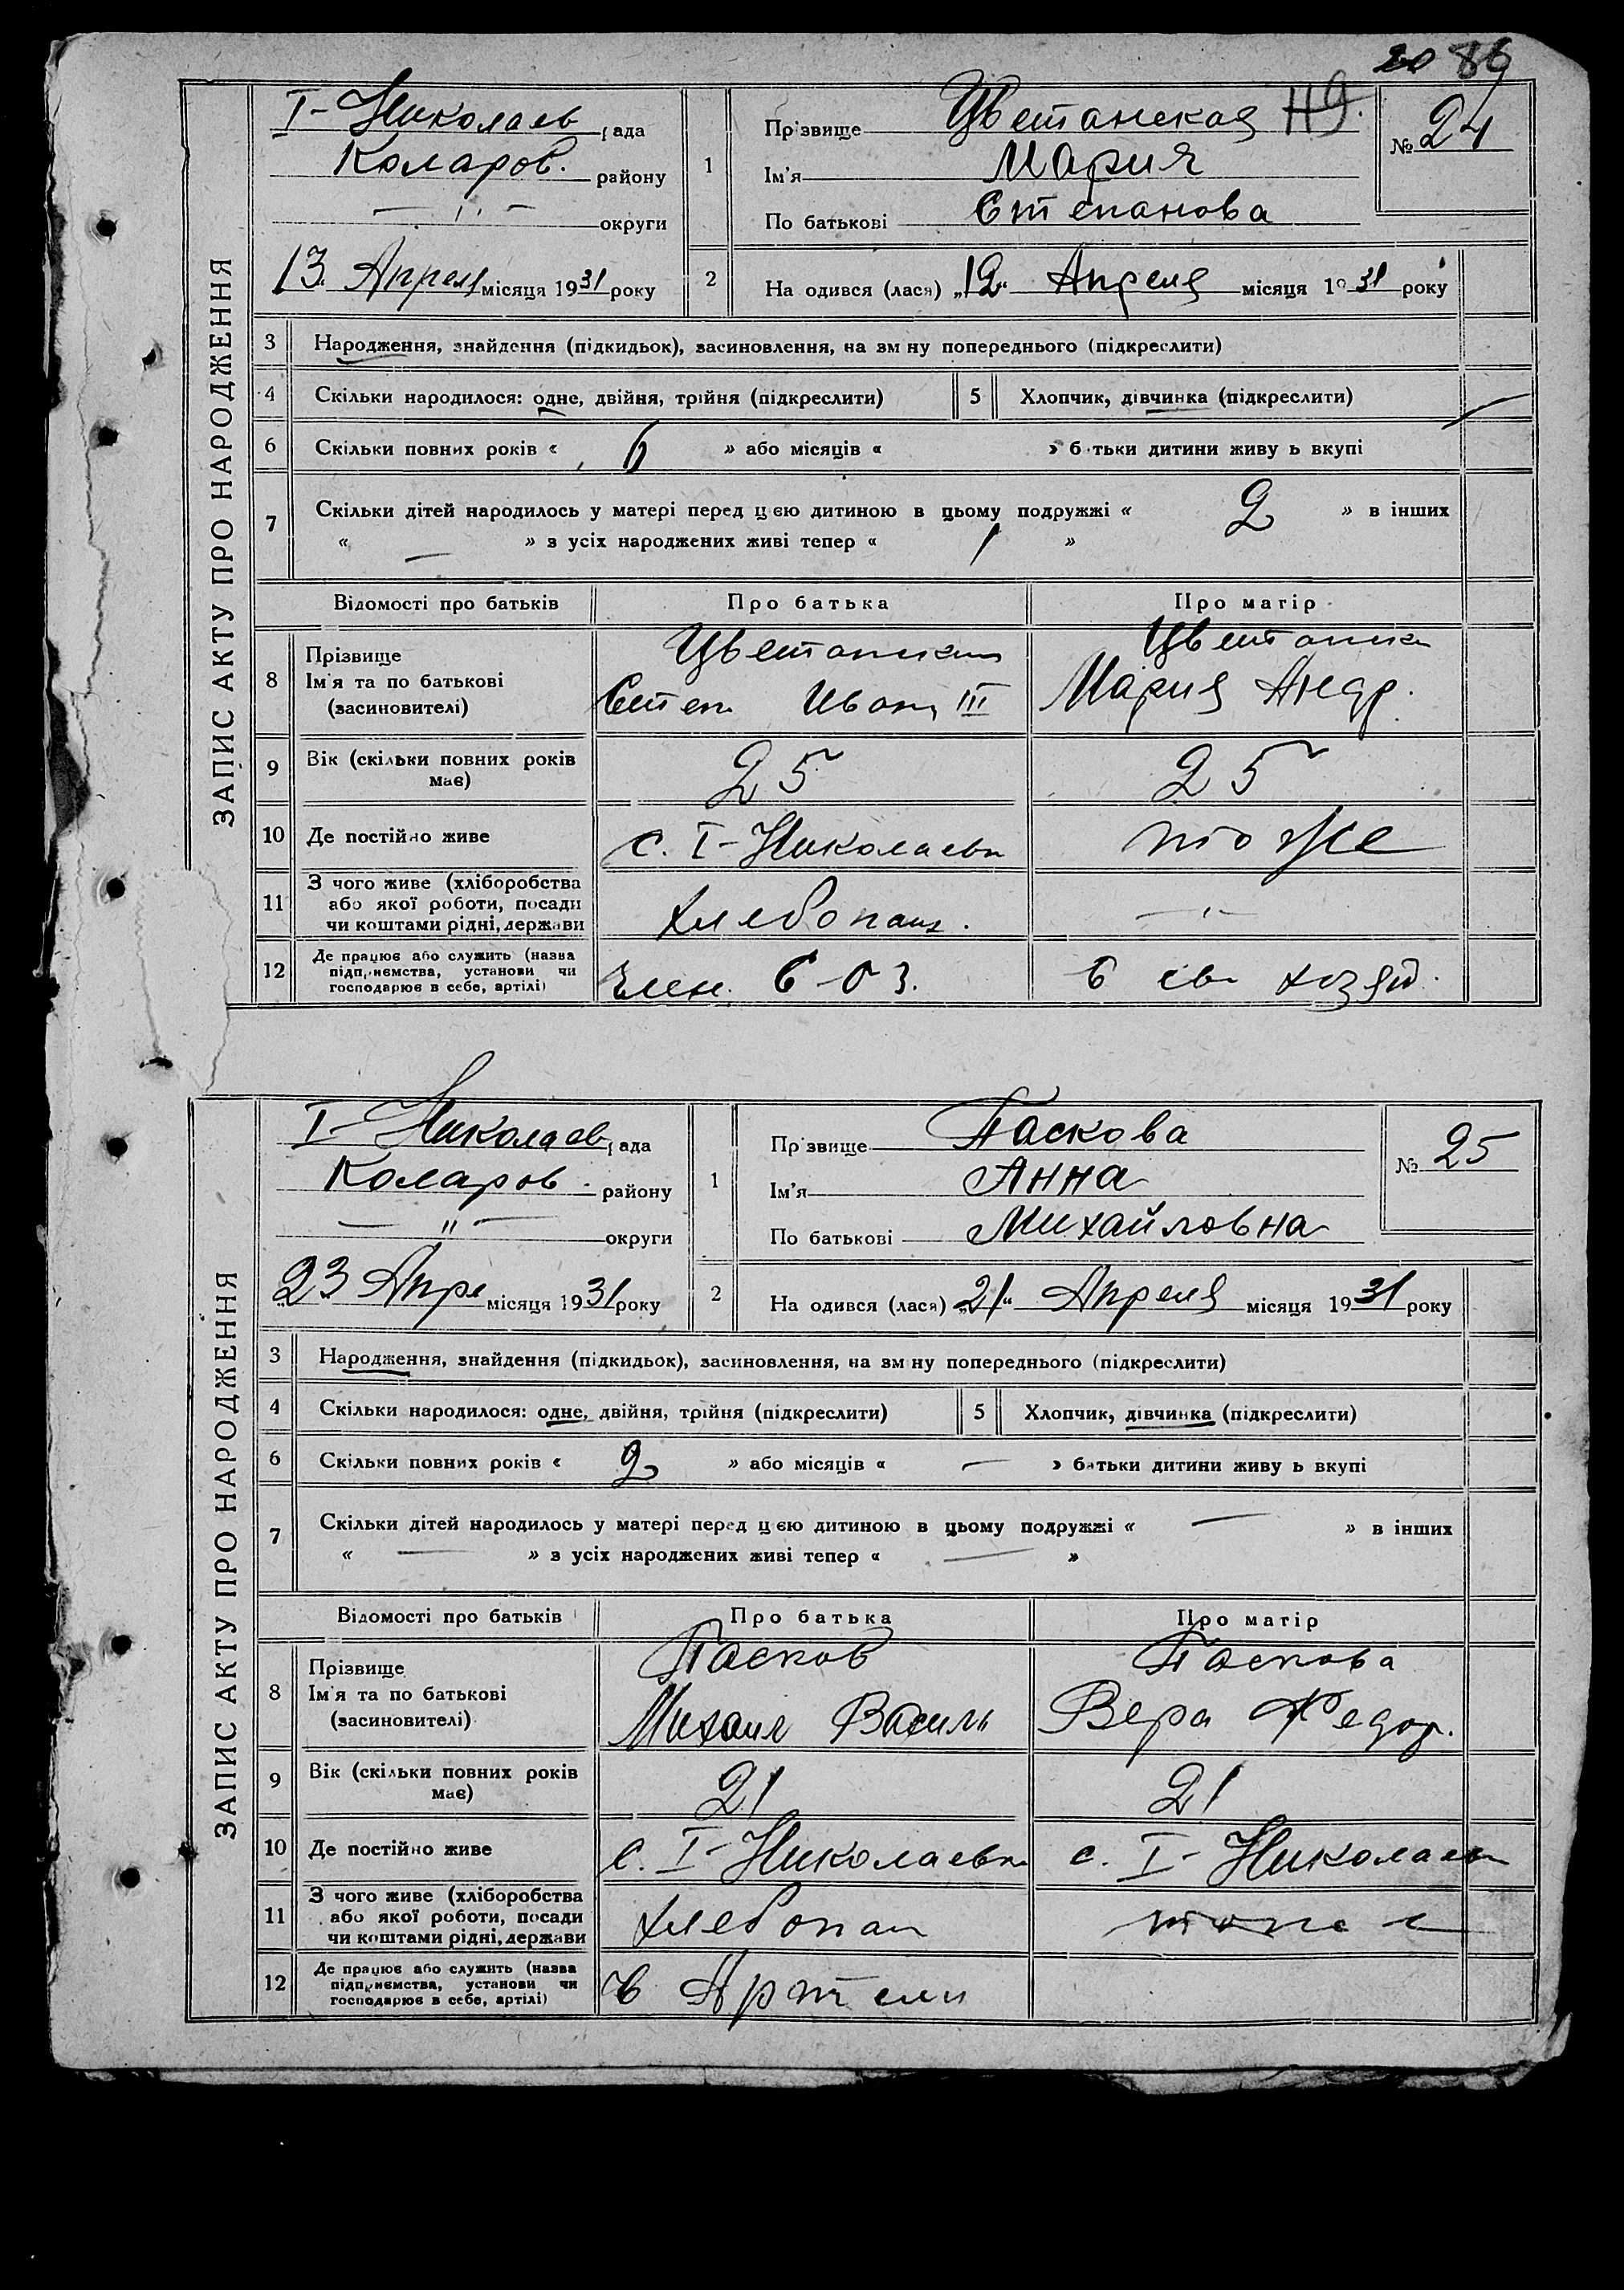 20 86
ЗАПИС АКТУ ПРО НАРОДЖЕННЯ
I-Николаев рада
Коларов. району
— " — округи
13 Апреля місяця 1931 року
1
Прізвище Цветанская Н9.
Ім'я Мария
По батькові Степанова
№ 24
2
На одився (лася) „12“ Апреля місяця 1931 року
3 Народження, знайдення (підкидьок), засиновлення, на зм ну попереднього (підкреслити)
4 Скільки народилося: одне, двійня, трійня (підкреслити) 5 Хлопчик, дівчинка (підкреслити)
6 Скільки повних років « 6 » або місяців « » батьки дитини живу ь вкупі
7 Скільки дітей народилось у матері перед цею дитиною в цьому подружжі « 2 » в інших
« — » з усіх народжених живі тепер « 1 »
Відомості про батьків Про батька Про матір
8 Прізвище
Ім'я та по батькові
(засиновителі)
Степ Иван III
Мария Андр.
9 Вік (скільки повних років має) 25 25
10 Де постійно живе с. I-Николаевк тоже
11 З чого живе (хліборобства
або якої роботи, посади
чи коштами рідні, держави
Хлебопаш. — " —
12 Де працює або служить (назва
підприємства, установи чи
господарює в себе, артілі)
Член СОЗ. в св хозяй.
ЗАПИС АКТУ ПРО НАРОДЖЕННЯ
I-Николаев рада
Коларов. району
— " — округи
23 Апре місяця 1931 року
1
Прізвище Паскова
Ім'я Анна
По батькові Михайловна
№ 25
2
На одився (лася) „21“ Апреля місяця 1931 року
3 Народження, знайдення (підкидьок), засиновлення, на зм ну попереднього (підкреслити)
4 Скільки народилося: одне, двійня, трійня (підкреслити) 5 Хлопчик, дівчинка (підкреслити)
6 Скільки повних років « 2 » або місяців « — » батьки дитини живу ь вкупі
7 Скільки дітей народилось у матері перед цею дитиною в цьому подружжі « — » в інших
« — » з усіх народжених живі тепер « — »
Відомості про батьків Про батька Про матір
8 Прізвище
Ім'я та по батькові
(засиновителі)
Пасков Паскова
Михаил Василь Вера Федор.
9 Вік (скільки повних років має) 21 21
10 Де постійно живе с. I-Николаевк с. I-Николаевк
11 З чого живе (хліборобства
або якої роботи, посади
чи коштами рідні, держави
Хлебопаш
12 Де працює або служить (назва
підприємства, установи чи
господарює в себе, артілі)
в Артели